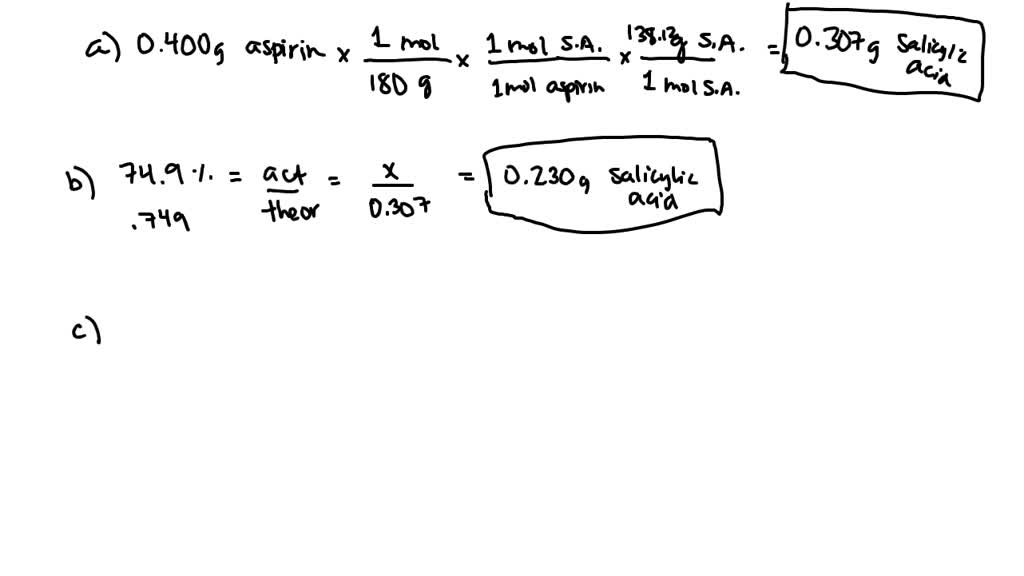 a) 0.400g aspirin x 1 mol / 180 g x 1 mol S.A. / 1 mol aspirin x 138.12g S.A. / 1 mol S.A. = 0.307g Salicylic acid
b) 74.9% = act / theor = x / 0.307 = 0.230g Salicylic acid
.749
c)